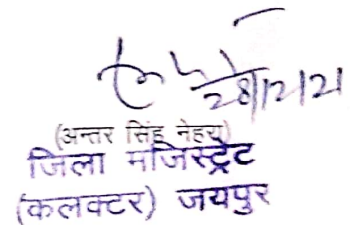 28/12/21
(अन्तर सिंह नेहरा)
जिला मजिस्ट्रेट
(कलक्टर) जयपुर